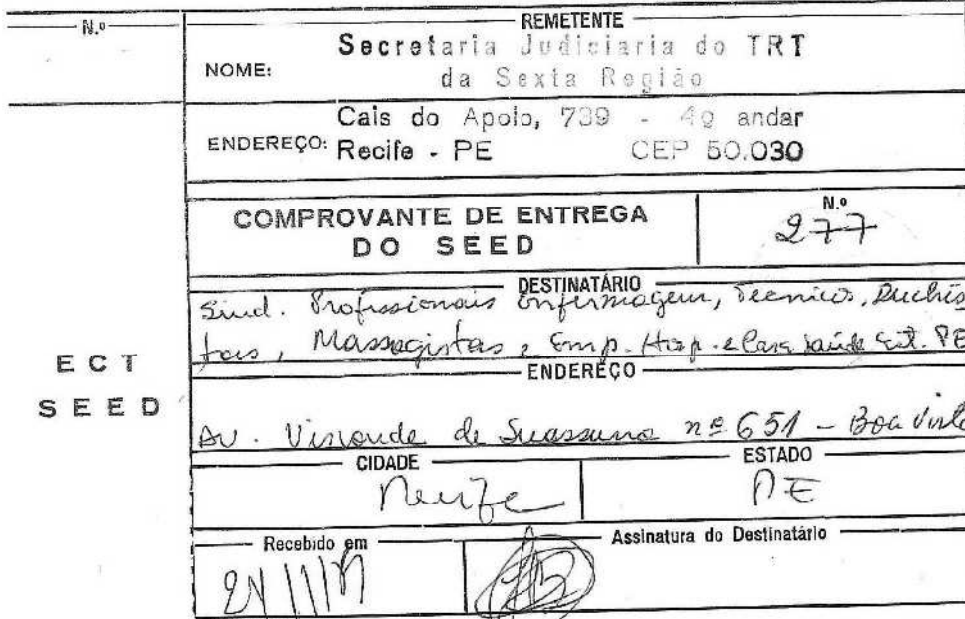 N.º
REMETENTE
NOME: Secretaria Judiciaria do TRT
da Sexta Região
ENDEREÇO: Cais do Apolo, 739 - 4º andar
Recife - PE CEP 50.030
COMPROVANTE DE ENTREGA
DO SEED
N.º
277
DESTINATÁRIO
Sind. Profissionais Enfermagem, Técnicos, Duchis
tas, Massagistas e Emp. Hosp. e Casa Saúde Est. PE
ENDEREÇO
Av. Visconde de Suassuna nº 651 - Boa Vista
ECT
SEED
CIDADE
Recife
ESTADO
PE
Recebido em
Assinatura do Destinatário